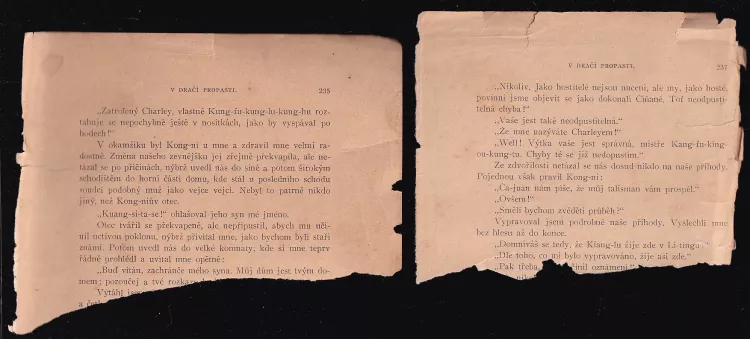 V DRAČÍ PROPASTI. 235
„Zatrolený Charley, vlastně Kung-fu-kung-lu-kung-hu roz-
tahuje se nepochybně ještě v nosítkách, jako by vyspával po
hodech!“
V okamžiku byl Kong-ni u mne a zdravil mne velmi ra-
dostně. Změna našeho zevnějšku jej zřejmě překvapila, ale ne-
tázal se po příčinách, nýbrž uvedl nás do síně a potom širokým
schodištěm do horní části domu, kde stál u posledního schodu
soudci podobný muž jako vejce vejci. Nebyl to patrně nikdo
jiný, než Kong-niův otec.
„Kuang-si-ta-se!“ ohlašoval jeho syn mé jméno.
Otec tvářil se překvapeně, ale nepřipustil, abych mu či-
nil uctivou poklonu, nýbrž přivítal mne, jako bychom byli staří
známí. Potom uvedl nás do velké komnaty, kde si mne teprv
řádně prohlédl a uvítal mne opětně:
„Buď vítán, zachránce mého syna. Můj dům jest tvým do-
mem; poroučej a tvé rozkazy
Vytáhl jsem
a
V DRAČÍ PROPASTI. 237
„Nikoliv. Jako hostitelé nejsou nuceni, ale my, jako hosté,
povinni jsme objevit se jako dokonalí Číňané. Toť neodpusti-
telná chyba!“
„Vaše jest také neodpustitelná.“
„Že mne nazýváte Charleyem!“
„Well! Výtka vaše jest správná, mistře Kang-fu-king-
ou-kung-tu. Chyby té se již nedopustím.“
Ze zdvořilosti netázal se nás dosud nikdo na naše příhody.
Pojednou však pravil Kong-ni:
„Ča-juan nám píše, že můj talisman vám prospěl.“
„Ovšem!“
„Směli bychom zvěděti průběh?“
Vypravoval jsem podrobně naše příhody. Vyslechli mne
bez hlesu až do konce.
„Domníváš se tedy, že Kiang-lu žije zde v Lí-tingu?“
„Dle toho, co mi bylo vypravováno, žije asi zde.“
„Pak třeba učinil oznámení.“